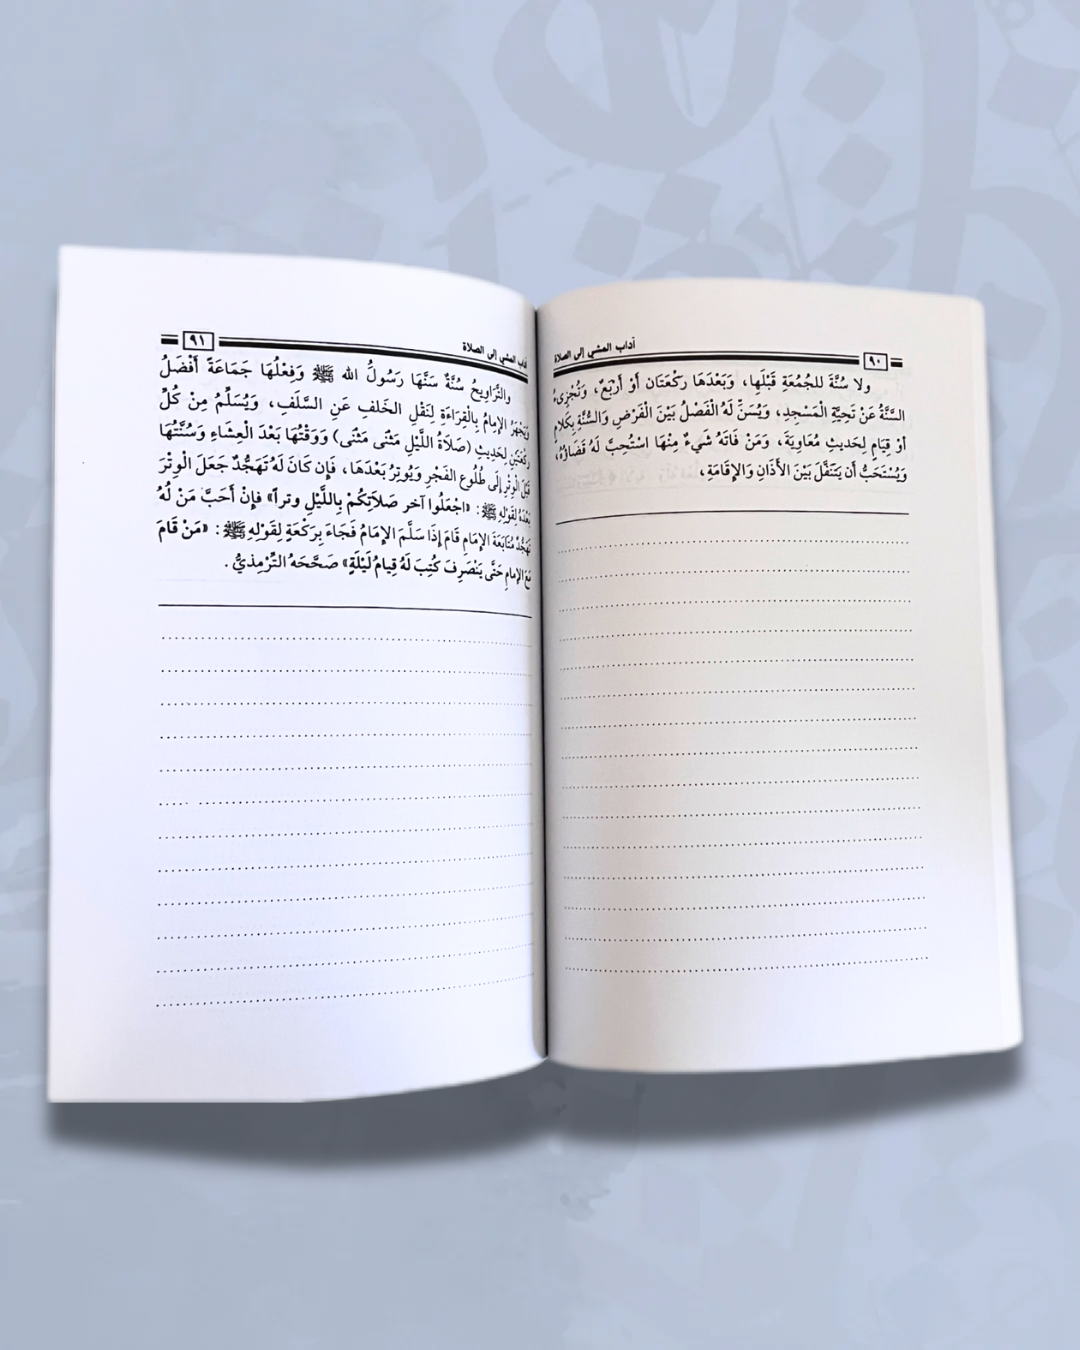 آداب المشي إلى الصلاة
٩٠
ولا سُنَّةَ للجُمُعَةِ قَبْلَها، وَبَعْدَهَا رَكْعَتَان أَوْ أَرْبَعٌ، وَتُجْزِىءُ
السُّنَّةُ عَنْ تَحِيَّةِ الْمَسْجِدِ، وَيُسَنُّ لَهُ الْفَصْلُ بَيْنَ الْفَرْضِ وَالسُّنَّةِ بِكَلامٍ
أوْ قِيَامٍ لِحَديثِ مُعَاوِيَةَ، وَمَنْ فَاتَهُ شَيءٌ مِنْهَا اسْتُحِبَّ لَهُ قَضَاؤُهُ،
وَيُسْتَحَبُّ أن يَتَنَفَّلَ بَيْنَ الأَذَانِ وَالإِقَامَةِ،
آداب المشي إلى الصلاة
٩١
والتَّرَاوِيحُ سُنَّةٌ سَنَّهَا رَسُولُ الله ﷺ وَفِعْلُهَا جَمَاعَةً أَفْضَلُ
وَيَجْهَرُ الإِمامُ بِالْقِرَاءَةِ لنَقْلِ الخَلفِ عَنِ السَّلَفِ، وَيُسَلِّمُ مِنْ كُلِّ
رَكْعَتَيْنِ لِحَدِيثِ (صَلاَةُ اللَّيْلِ مَثْنى مَثْنى) وَوَقْتُهَا بَعْدَ العِشَاءِ وَسُنَّتُهَا
قَبْلَ الْوِتْرِ إلَى طُلُوعِ الفَجْرِ وَيُوتِرُ بَعْدَهَا، فَإِن كَانَ لَهُ تَهَجُّدٌ جَعَلَ الْوِتْرَ
بَعْدَهُ لِقَوْلِهِ ﷺ: «اجْعَلُوا آخر صَلاَتِكُمْ بِاللَّيْلِ وتراً» فإنْ أَحَبَّ مَنْ لَهُ
تَهَجُّدٌ مُتَابَعَةَ الإِمَامِ قَامَ إذَا سَلَّمَ الإِمَامُ فَجَاءَ بِرَكْعَةٍ لِقَوْلِهِ ﷺ: «مَنْ قَامَ
مَعَ الإمامِ حَتَّى يَنْصَرِفَ كُتِبَ لَهُ قِيامُ لَيْلَةٍ» صَحَّحَهُ التِّرْمِذيُّ.